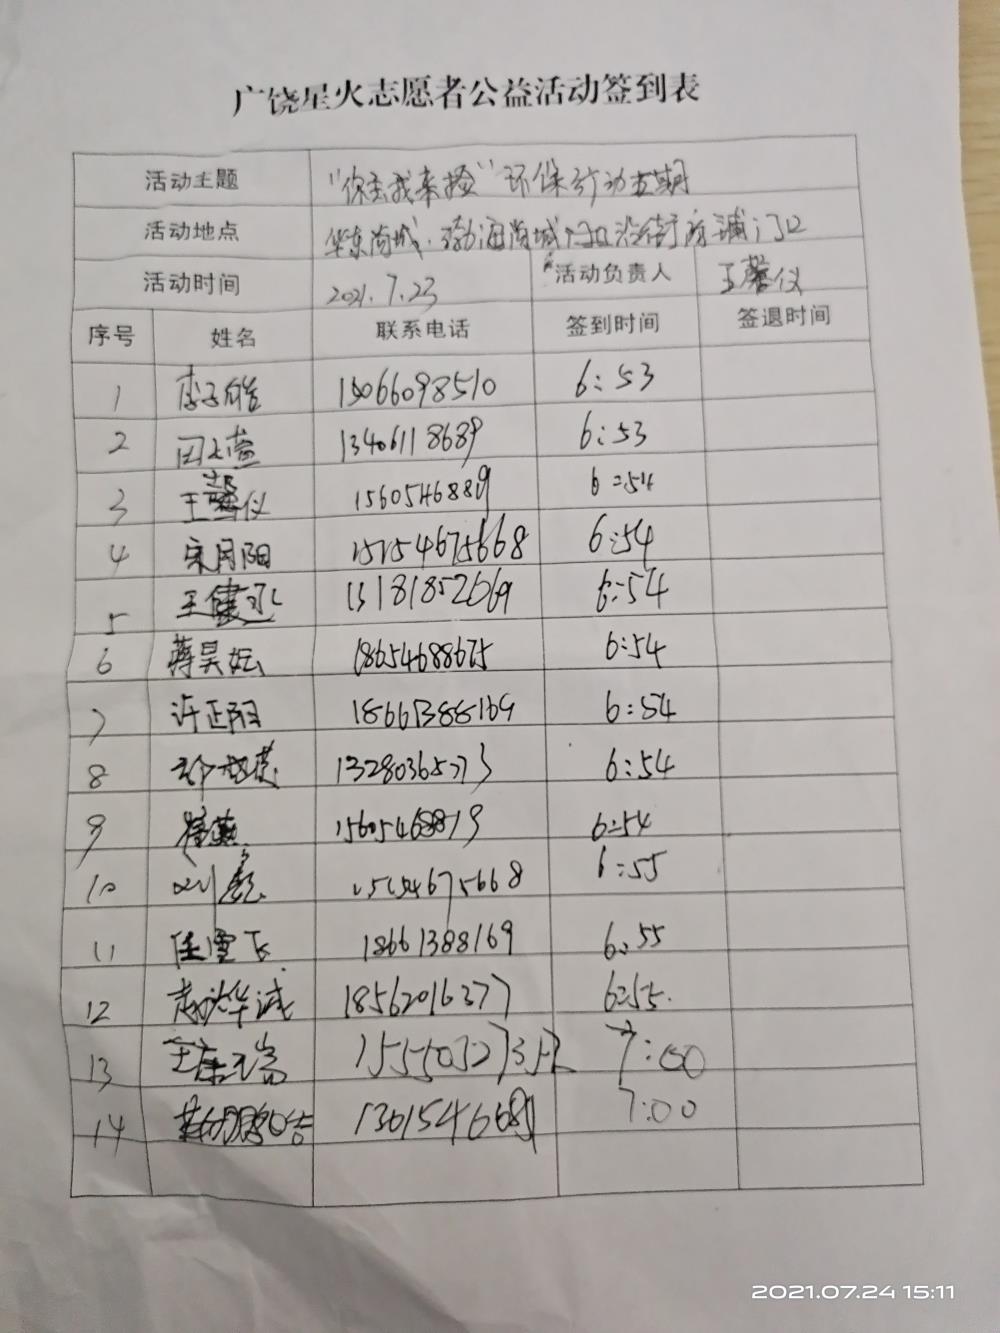 广饶星火志愿者公益活动签到表
活动主题 "你丢我来捡"环保行动五期
活动地点 华东商城、渤海商城门口沿街店铺门口
活动时间 2021.7.23 活动负责人 王馨仪
序号 姓名 联系电话 签到时间 签退时间
1 15066098510 6:53
2 13406118689 6:53
3 王馨仪 1560546889 6:54
4 宋月阳 15154675668 6:54
5 王健 13181852669 6:54
6 蒋昊妘 18654688675 6:54
7 许正阳 18661388169 6:54
8 13280365773 6:54
9 15605468819 6:54
10 刘 15154675668 6:55
11 任雪飞 18661388169 6:55
12 赵烨诚 18562016377 6:55.
13 王 7:00
14 7:00
2021.07.24 15:11